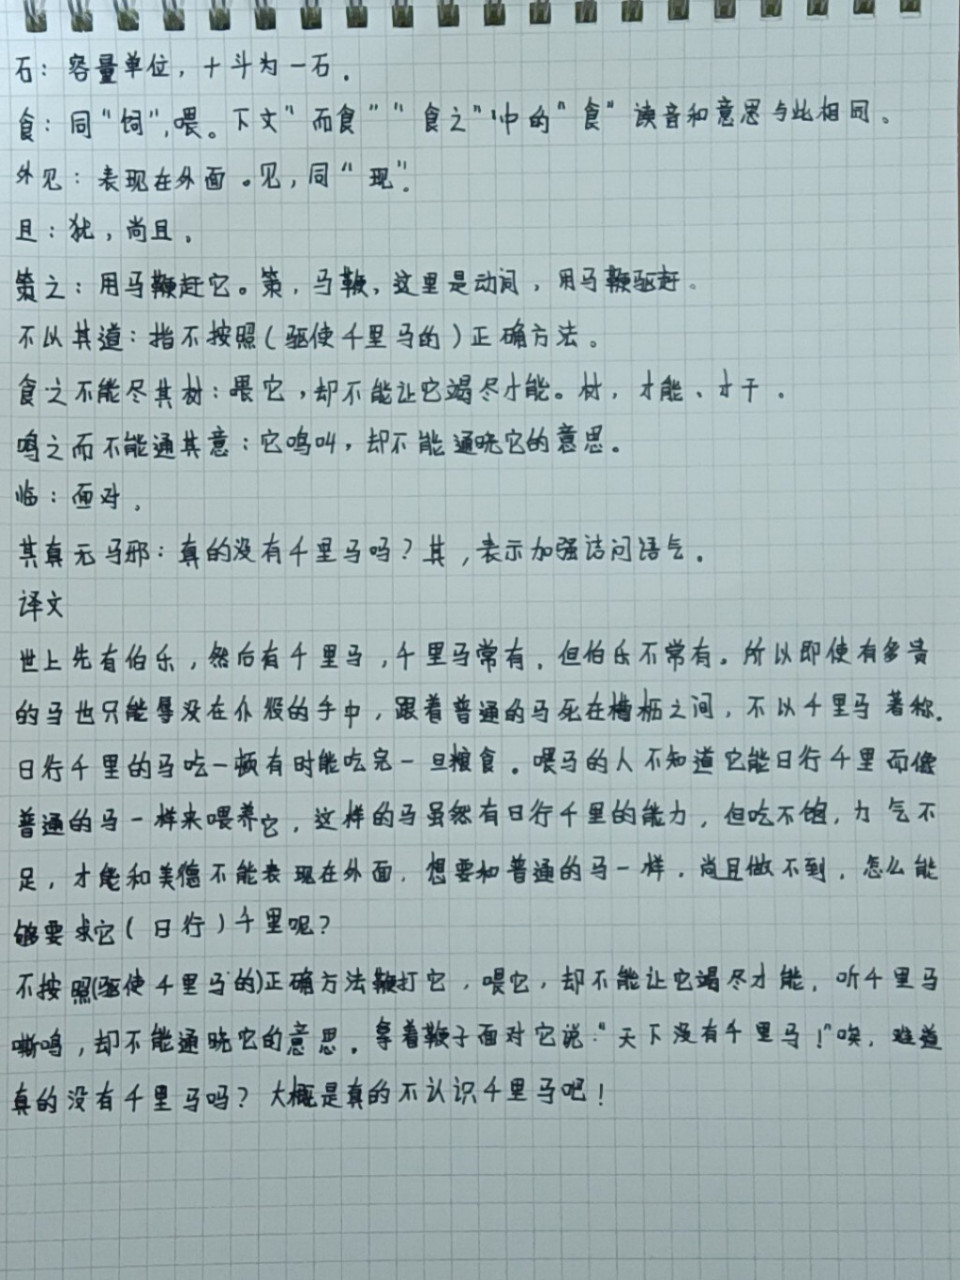 石：容量单位，十斗为一石。
食：同“饲”，喂。下文“而食”“食之”中的“食”读音和意思与此相同。
外见：表现在外面。见，同“现”。
且：犹，尚且。
策之：用马鞭赶它。策，马鞭，这里是动词，用马鞭驱赶。
不以其道：指不按照（驱使千里马的）正确方法。
食之不能尽其材：喂它，却不能让它竭尽才能。材，才能、才干。
鸣之而不能通其意：它鸣叫，却不能通晓它的意思。
临：面对。
其真无马邪：真的没有千里马吗？其，表示加强诘问语气。
译文
世上先有伯乐，然后有千里马，千里马常有，但伯乐不常有。所以即使有多贵
的马也只能辱没在仆役的手中，跟着普通的马死在槽枥之间，不以千里马著称。
日行千里的马吃一顿有时能吃完一旦粮食。喂马的人不知道它能日行千里而像
普通的马一样来喂养它，这样的马虽然有日行千里的能力，但吃不饱，力气不
足，才能和美德不能表现在外面，想要和普通的马一样，尚且做不到，怎么能
够要求它（日行）千里呢？
不按照(驱使千里马的)正确方法鞭打它，喂它，却不能让它竭尽才能，听千里马
嘶鸣，却不能通晓它的意思。拿着鞭子面对它说：“天下没有千里马！”唉，难道
真的没有千里马吗？大概是真的不认识千里马吧！